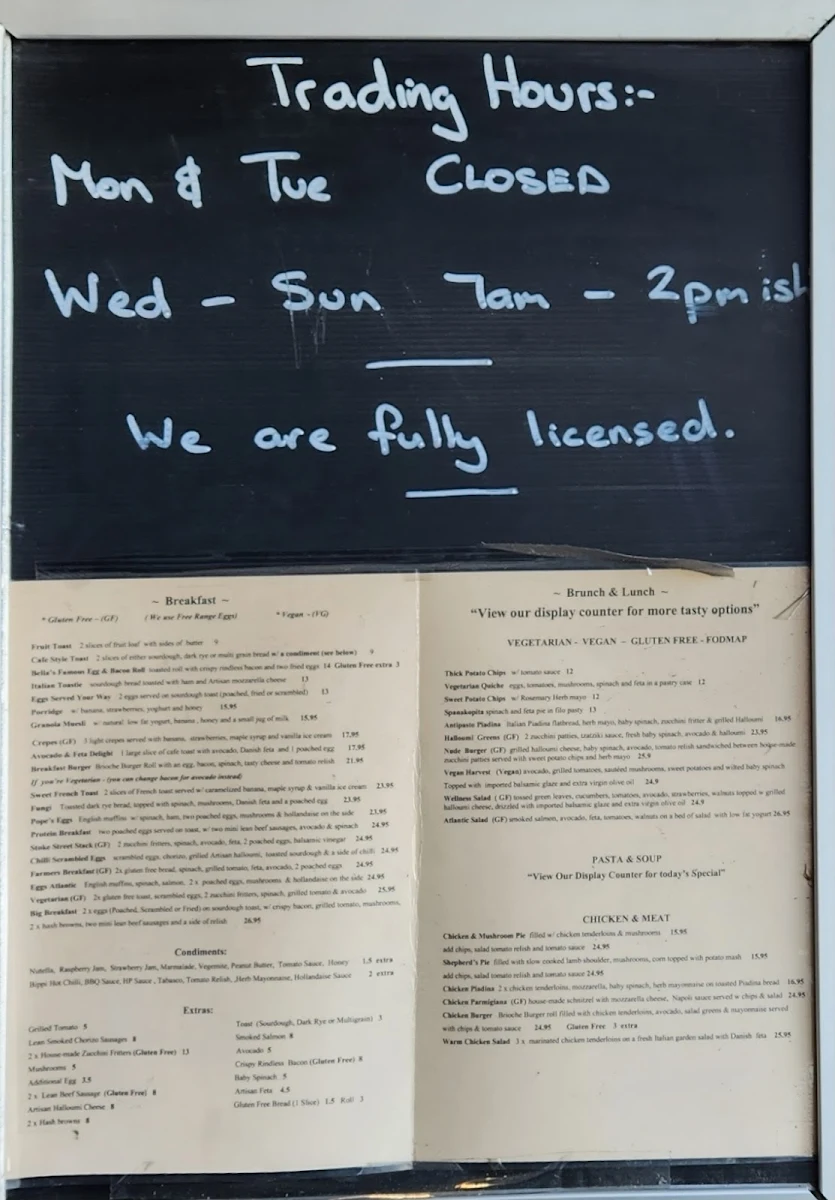 Trading Hours:-
Mon & Tue CLOSED
Wed - Sun 7am - 2pm ish
We are fully licensed.
~ Breakfast ~
* Gluten Free - (GF) (We use Free Range Eggs) * Vegan - (VG)
Fruit Toast 2 slices of fruit loaf with sides of butter 9
Cafe Style Toast 2 slices of either sourdough, dark rye or multi grain bread w/ a condiment (see below) 9
Bella's Famous Egg & Bacon Roll toasted roll with crispy rindless bacon and two fried eggs 14 Gluten Free extra 3
Italian Toastie sourdough bread toasted with ham and Artisan mozzarella cheese 13
Eggs Served Your Way 2 eggs served on sourdough toast (poached, fried or scrambled) 13
Porridge w/ banana, strawberries, yoghurt and honey 15.95
Granola Muesli w/ natural low fat yogurt, banana, honey and a small jug of milk 15.95
Crepes (GF) 3 light crepes served with banana, strawberries, maple syrup and vanilla ice cream 17.95
Avocado & Feta Delight 1 large slice of cafe toast with avocado, Danish feta and 1 poached egg 17.95
Breakfast Burger Brioche Burger Roll with an egg, bacon, spinach, tasty cheese and tomato relish 21.95
If you're Vegetarian - (you can change bacon for avocado instead)
Sweet French Toast 2 slices of French toast served w/ caramelized banana, maple syrup & vanilla ice cream 23.95
Fungi Toasted dark rye bread, topped with spinach, mushrooms, Danish feta and a poached egg 23.95
Pope's Eggs English muffins w/ spinach, ham, two poached eggs, mushrooms & hollandaise on the side 23.95
Protein Breakfast two poached eggs served on toast, w/ two mini lean beef sausages, avocado & spinach 24.95
Stoke Street Stack (GF) 2 zucchini fritters, spinach, avocado, feta, 2 poached eggs, balsamic vinegar 24.95
Chilli Scrambled Eggs scrambled eggs, chorizo, grilled Artisan halloumi, toasted sourdough & a side of chilli 24.95
Farmers Breakfast (GF) 2x gluten free bread, spinach, grilled tomato, feta, avocado, 2 poached eggs 24.95
Eggs Atlantic English muffins, spinach, salmon, 2 x poached eggs, mushrooms & hollandaise on the side 24.95
Vegetarian (GF) 2x gluten free toast, scrambled eggs, 2 zucchini fritters, spinach, grilled tomato & avocado 25.95
Big Breakfast 2 x eggs (Poached, Scrambled or Fried) on sourdough toast, w/ crispy bacon, grilled tomato, mushrooms,
2 x hash browns, two mini lean beef sausages and a side of relish 26.95
Condiments:
Nutella, Raspberry Jam, Strawberry Jam, Marmalade, Vegemite, Peanut Butter, Tomato Sauce, Honey 1.5 extra
Bipps Hot Chilli, BBQ Sauce, HP Sauce , Tabasco, Tomato Relish, Herb Mayonnaise, Hollandaise Sauce 2 extra
Extras:
Grilled Tomato 5
Lean Smoked Chorizo Sausages 8
2 x House-made Zucchini Fritters (Gluten Free) 13
Mushrooms 5
Additional Egg 3.5
2 x Lean Beef Sausage (Gluten Free) 8
Artisan Halloumi Cheese 8
2 x Hash browns 8
Toast (Sourdough, Dark Rye or Multigrain) 3
Smoked Salmon 8
Avocado 5
Crispy Rindless Bacon (Gluten Free) 8
Baby Spinach 5
Artisan Feta 4.5
Gluten Free Bread (1 Slice) 1.5 Roll 3
~ Brunch & Lunch ~
"View our display counter for more tasty options"
VEGETARIAN - VEGAN - GLUTEN FREE - FODMAP
Thick Potato Chips w/ tomato sauce 12
Vegetarian Quiche eggs, tomatoes, mushrooms, spinach and feta in a pastry case 12
Sweet Potato Chips w/ Rosemary Herb mayo 12
Spanakopita spinach and feta pie in filo pastry 13
Antipasto Piadina Italian Piadina flatbread, herb mayo, baby spinach, zucchini fritter & grilled Halloumi 16.95
Halloumi Greens (GF) 2 zucchini patties, tzatziki sauce, fresh baby spinach, avocado & halloumi 23.95
Nude Burger (GF) grilled halloumi cheese, baby spinach, avocado, tomato relish sandwiched between house-made
zucchini patties served with sweet potato chips and herb mayo 25.9
Vegan Harvest (Vegan) avocado, grilled tomatoes, sautéed mushrooms, sweet potatoes and wilted baby spinach
Topped with imported balsamic glaze and extra virgin olive oil 24.9
Wellness Salad ( GF) tossed green leaves, cucumbers, tomatoes, avocado, strawberries, walnuts topped w grilled
halloumi cheese, drizzled with imported balsamic glaze and extra virgin olive oil 24.9
Atlantic Salad (GF) smoked salmon, avocado, feta, tomatoes, walnuts on a bed of salad with low fat yogurt 26.95
PASTA & SOUP
"View Our Display Counter for today's Special"
CHICKEN & MEAT
Chicken & Mushroom Pie filled w/ chicken tenderloins & mushrooms 15.95
add chips, salad tomato relish and tomato sauce 24.95
Shepherd's Pie filled with slow cooked lamb shoulder, mushrooms, corn topped with potato mash 15.95
add chips, salad tomato relish and tomato sauce 24.95
Chicken Piadina 2 x chicken tenderloins, mozzarella, baby spinach, herb mayonnaise on toasted Piadina bread 16.95
Chicken Parmigiana (GF) house-made schnitzel with mozzarella cheese, Napoli sauce served w chips & salad 24.95
Chicken Burger Brioche Burger roll filled with chicken tenderloins, avocado, salad greens & mayonnaise served
with chips & tomato sauce 24.95 Gluten Free 3 extra
Warm Chicken Salad 3 x marinated chicken tenderloins on a fresh Italian garden salad with Danish feta 25.95